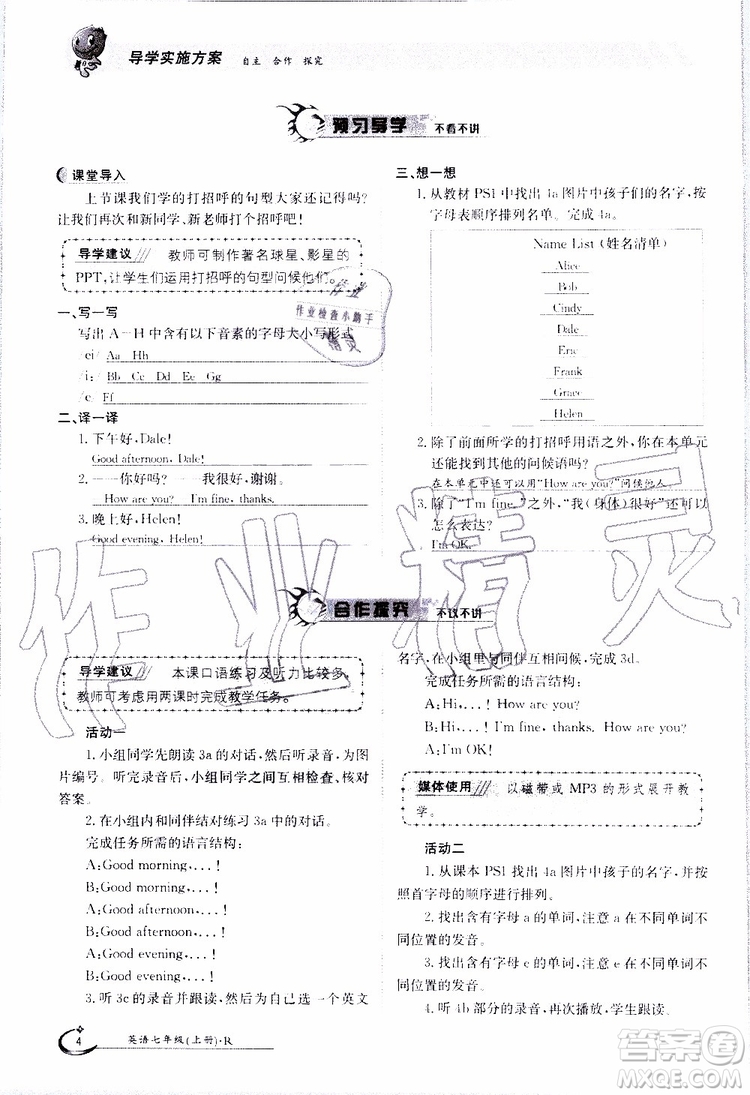 导学实施方案 自主 合作 探究
预习导学 不看不讲
课堂导入
上节课我们学的打招呼的句型大家还记得吗?
让我们再次和新同学、新老师打个招呼吧!
导学建议 教师可制作著名球星、影星的
PPT,让学生们运用打招呼的句型问候他们。
一、写一写
写出 A—H 中含有以下音素的字母大小写形式
/ei/ Aa Hh
/i:/ Bb Cc Dd Ee Gg
/e/ Ff
二、译一译
1. 下午好,Dale!
Good afternoon, Dale!
2. ——你好吗? ——我很好,谢谢。
How are you? I'm fine, thanks.
3. 晚上好,Helen!
Good evening, Helen!
三、想一想
1. 从教材 PS1 中找出 4a 图片中孩子们的名字,按
字母表顺序排列名单。完成 4a。
Name List (姓名清单)
Alice
Bob
Cindy
Dale
Eric
Frank
Grace
Helen
2. 除了前面所学的打招呼用语之外,你在本单元
还能找到其他的问候语吗?
在本单元中还可以用"How are you?"问候他人。
3. 除了"I'm fine."之外,"我(身体)很好"还可以
怎么表达?
I'm OK!
作业检查小助手
精灵
合作探究 不议不讲
导学建议 本课口语练习及听力比较多,
教师可考虑用两课时完成教学任务。
活动一
1. 小组同学先朗读 3a 的对话,然后听录音,为图
片编号。听完录音后,小组同学之间互相检查、核对
答案。
2. 在小组内和同伴结对练习 3a 中的对话。
完成任务所需的语言结构:
A:Good morning,...!
B:Good morning,...!
A:Good afternoon,...!
B:Good afternoon,...!
A:Good evening,...!
B:Good evening,...!
3. 听 3c 的录音并跟读,然后自己选一个英文
名字,在小组里与同伴互相问候,完成 3d。
完成任务所需的语言结构:
A:Hi,...! How are you?
B:Hi,...! I'm fine, thanks. How are you?
A:I'm OK!
媒体使用 以磁带或 MP3 的形式展开教
学。
活动二
1. 从课本 PS1 找出 4a 图片中孩子的名字,并按
照首字母的顺序进行排列。
2. 找出含有字母 a 的单词,注意 a 在不同单词不
同位置的发音。
3. 找出含有字母 e 的单词,注意 e 在不同单词不
同位置的发音。
4. 听 4b 部分的录音,再次播放,学生跟读。
4 英语七年级(上册)·R
作业精灵
答案圈
MXQE.COM